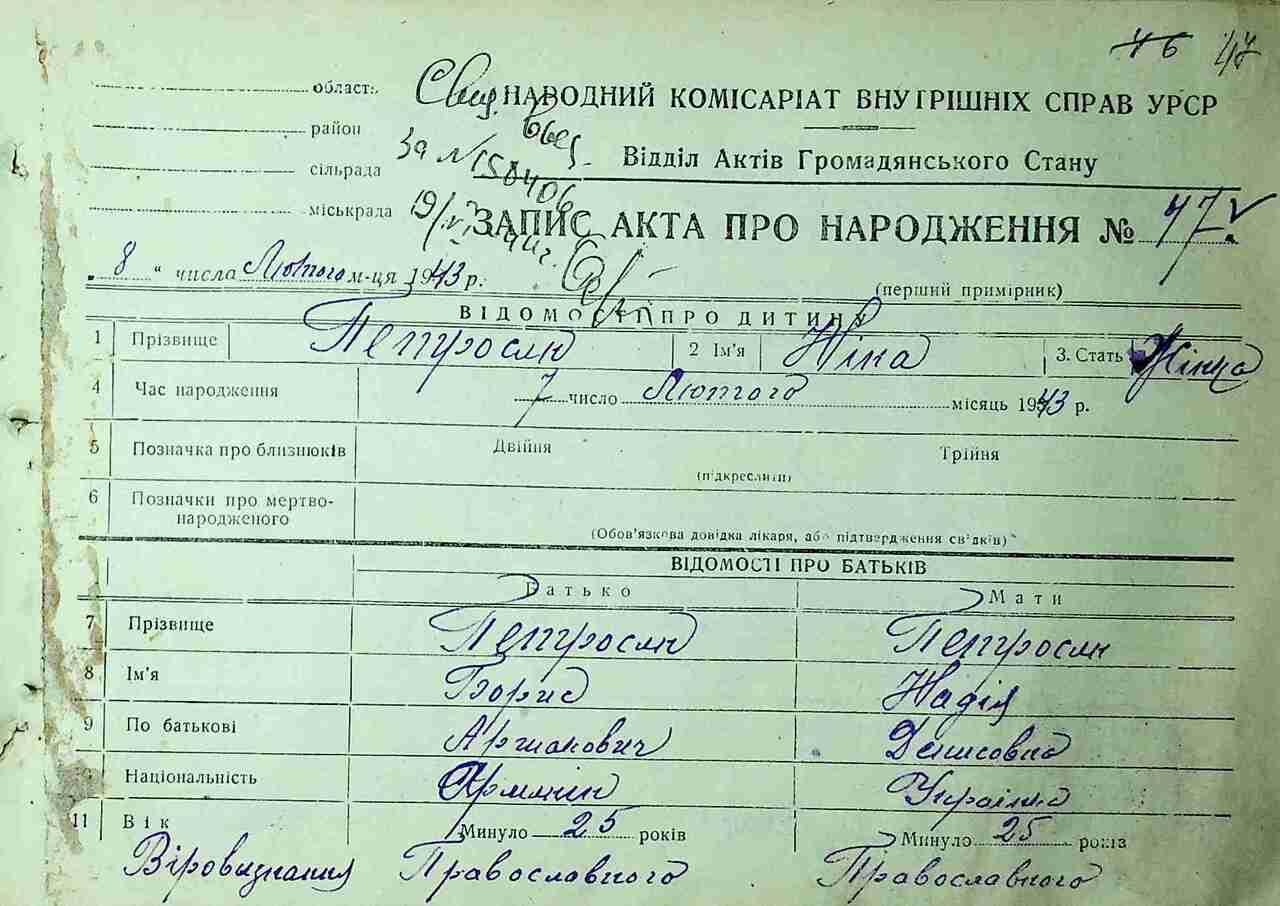 46 47
област:
район
сільрада
міськрада
Свид.
НАРОДНИЙ КОМІСАРІАТ ВНУТРІШНІХ СПРАВ УРСР
За № 158406
Відділ Актів Громадянського Стану
ЗАПИС АКТА ПРО НАРОДЖЕННЯ № 47
„8“ числа Лютого м-ця 1943 р.
(перший примірник)
ВІДОМОСТІ ПРО ДИТИНУ
1 Прізвище Петросян 2 Ім'я Ніна 3. Стать Жіноча
4 Час народження 7 число Лютого місяць 1943 р.
5 Позначка про близнюків Двійня Трійня
(підкреслити)
6 Позначки про мертво-
народженого
(Обов'язкова довідка лікаря, або підтвердження свідків)
ВІДОМОСТІ ПРО БАТЬКІВ
Батько Мати
7 Прізвище Петросян Петросян
8 Ім'я Борис Надія
9 По батькові Денисовна
Національність Армянин Українка
11 Вік Минуло 25 років Минуло 25 років
Віровизнання Православного Православного